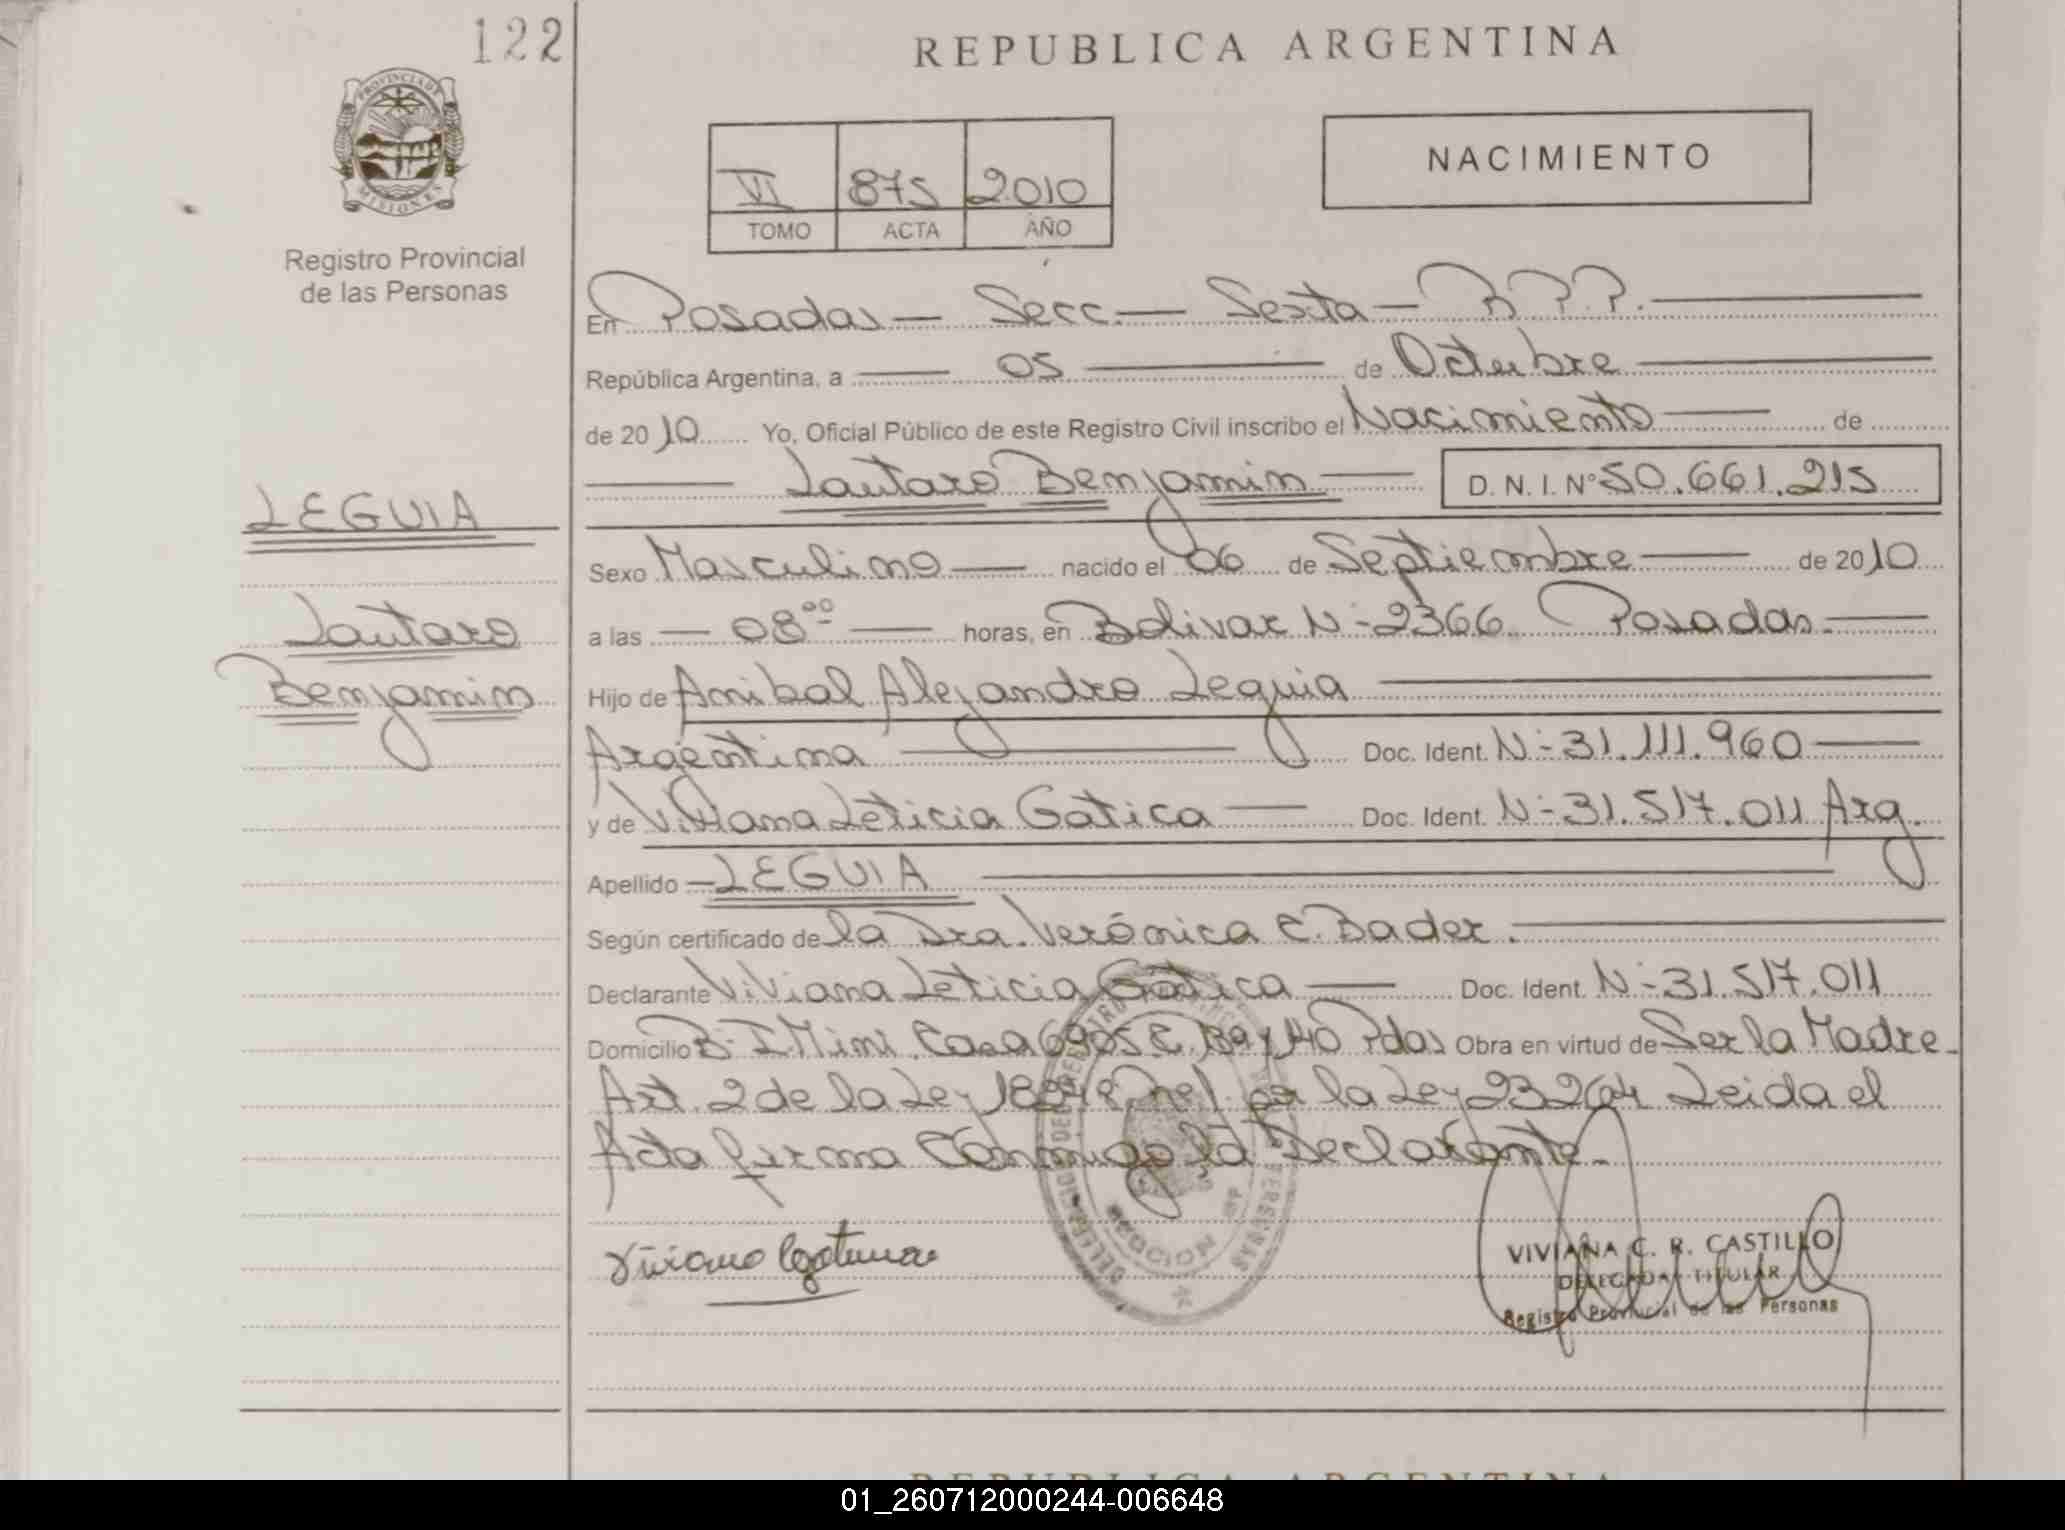 122
REPUBLICA ARGENTINA
PROVINCIA DE
MISIONES
Registro Provincial
de las Personas
NACIMIENTO
VI 875 2010
TOMO ACTA AÑO
En Posadas — Secc. — Sexta — R.P.P.
República Argentina, a 05 de Octubre
de 2010 Yo, Oficial Público de este Registro Civil inscribo el Nacimiento de
Lautaro Benjamin D. N. I. Nº 50.661.215
LEGUIA
Lautaro
Benjamin
Sexo Masculino nacido el 06 de Septiembre de 2010
a las 08 00 horas, en Bolivar N-2366 Posadas.
Hijo de Anibal Alejandro Leguia
Argentina Doc. Ident. N-31.111.960
y de Viviana Leticia Gatica Doc. Ident. N-31.517.011 Arg.
Apellido LEGUIA
Según certificado de la Dra. Verónica E. Bader.
Declarante Viviana Leticia Gatica Doc. Ident. N-31.517.011
Domicilio B- I Mini. Casa C. 139 y 140 Pdas Obra en virtud de Ser la Madre-
Art. 2 de la Ley por la Ley 23264 Leida el
Acta firma Conmigo la Declarante-
SECCION
VIVIANA C. R. CASTILLO
DELEGADA TITULAR
Registro Provincial de las Personas
REPUBLICA ARGENTINA
01_260712000244-006648